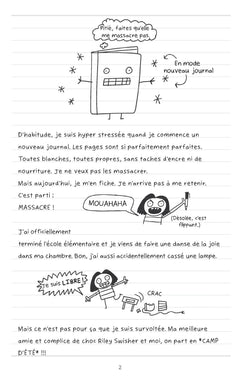 Pitié, faites qu'elle
ne massacre pas.
En mode
nouveau journal
D'habitude, je suis hyper stressée quand je commence un
nouveau journal. Les pages sont si parfaitement parfaites.
Toutes blanches, toutes propres, sans taches d'encre ni de
nourriture. Je ne veux pas les massacrer.
Mais aujourd'hui, je m'en fiche. Je n'arrive pas à me retenir.
C'est parti :
MASSACRE !
MOUAHAHA
(Désolée, c'est
flippant.)
J'ai officiellement
terminé l'école élémentaire et je viens de faire une danse de la joie
dans ma chambre. Bon, j'ai aussi accidentellement cassé une lampe.
Je suis LIBRE !
CRAC
Mais ce n'est pas pour ça que je suis survoltée. Ma meilleure
amie et complice de choc Riley Swisher et moi, on part en *CAMP
D'ÉTÉ* !!!
2